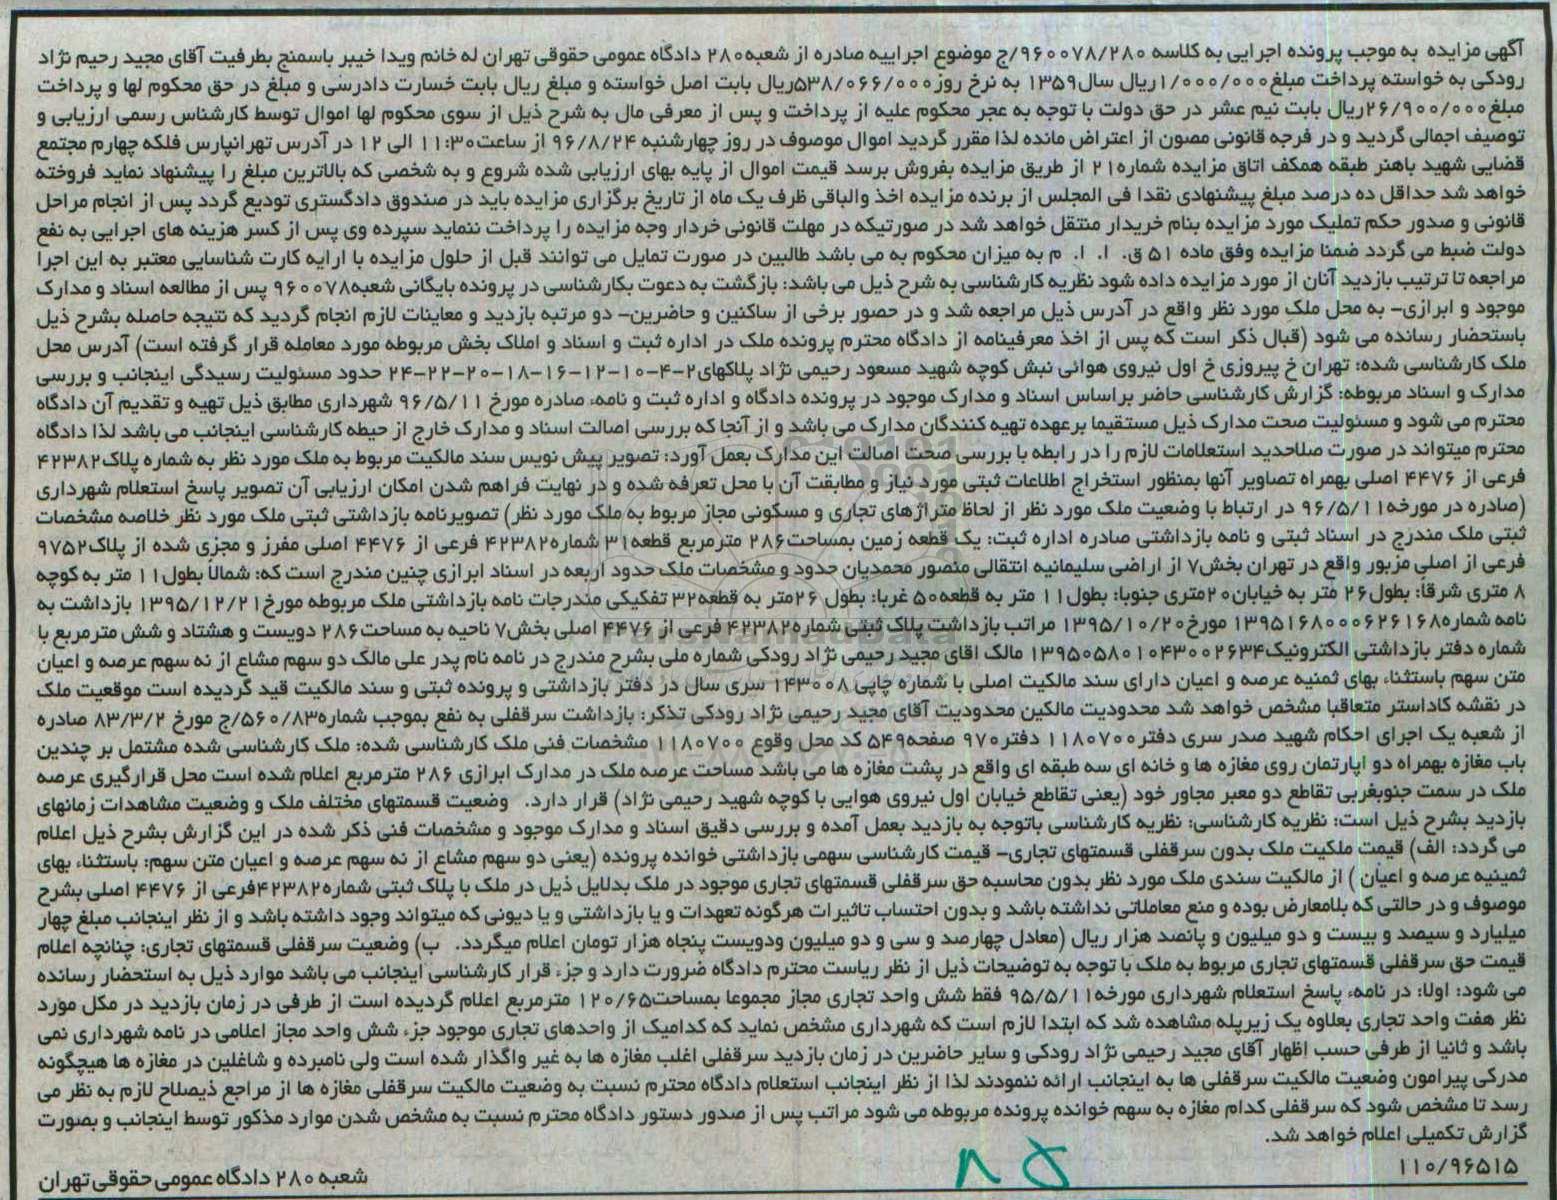 آگهی مزایده به موجب پرونده اجرایی به کلاسه ۹۶۰۰۷۸/۲۸۰/ج موضوع اجراییه صادره از شعبه۲۸۰ دادگاه عمومی حقوقی تهران له خانم ویدا خیبر باسمنج بطرفیت آقای مجید رحیم نژاد
رودکی به خواسته پرداخت مبلغ۱/۰۰۰/۰۰۰ریال سال۱۳۵۹ به نرخ روز۵۳۸/۰۶۶/۰۰۰ریال بابت اصل خواسته و مبلغ ریال بابت خسارت دادرسی و مبلغ در حق محکوم لها و پرداخت
مبلغ۲۶/۹۰۰/۰۰۰ریال بابت نیم عشر در حق دولت با توجه به عجر محکوم علیه از پرداخت و پس از معرفی مال به شرح ذیل از سوی محکوم لها اموال توسط کارشناس رسمی ارزیابی و
توصیف اجمالی گردید و در فرجه قانونی مصون از اعتراض مانده لذا مقرر گردید اموال موصوف در روز چهارشنبه ۹۶/۸/۲۴ از ساعت۱۱:۳۰ الی ۱۲ در آدرس تهرانپارس فلکه چهارم مجتمع
قضایی شهید باهنر طبقه همکف اتاق مزایده شماره۲۱ از طریق مزایده بفروش برسد قیمت اموال از پایه بهای ارزیابی شده شروع و به شخصی که بالاترین مبلغ را پیشنهاد نماید فروخته
خواهد شد حداقل ده درصد مبلغ پیشنهادی نقدا فی المجلس از برنده مزایده اخذ والباقی ظرف یک ماه از تاریخ برگزاری مزایده باید در صندوق دادگستری تودیع گردد پس از انجام مراحل
قانونی و صدور حکم تملیک مورد مزایده بنام خریدار منتقل خواهد شد در صورتیکه در مهلت قانونی خردار وجه مزایده را پرداخت ننماید سپرده وی پس از کسر هزینه های اجرایی به نفع
دولت ضبط می گردد ضمنا مزایده وفق ماده ۵۱ ق. ا. ا. م به میزان محکوم به می باشد طالبین در صورت تمایل می توانند قبل از حلول مزایده با ارایه کارت شناسایی معتبر به این اجرا
مراجعه تا ترتیب بازدید آنان از مورد مزایده داده شود نظریه کارشناسی به شرح ذیل می باشد: بازگشت به دعوت بکارشناسی در پرونده بایگانی شعبه۹۶۰۰۷۸ پس از مطالعه اسناد و مدارک
موجود و ابرازی- به محل ملک مورد نظر واقع در آدرس ذیل مراجعه شد و در حصور برخی از ساکنین و حاضرین- دو مرتبه بازدید و معاینات لازم انجام گردید که نتیجه حاصله بشرح ذیل
باستحضار رسانده می شود (قبال ذکر است که پس از اخذ معرفینامه از دادگاه محترم پرونده ملک در اداره ثبت و اسناد و املاک بخش مربوطه مورد معامله قرار گرفته است) آدرس محل
ملک کارشناسی شده: تهران خ پیروزی خ اول نیروی هوائی نبش کوچه شهید مسعود رحیمی نژاد پلاکهای۲-۴-۱۰-۱۲-۱۶-۱۸-۲۰-۲۲-۲۴ حدود مسئولیت رسیدگی اینجانب و بررسی
مدارک و اسناد مربوطه: گزارش کارشناسی حاضر براساس اسناد و مدارک موجود در پرونده دادگاه و اداره ثبت و نامه، صادره مورخ ۹۶/۵/۱۱ شهرداری مطابق ذیل تهیه و تقدیم آن دادگاه
محترم می شود و مسئولیت صحت مدارک ذیل مستقیما برعهده تهیه کنندگان مدارک می باشد و از آنجا که بررسی اصالت اسناد و مدارک خارج از حیطه کارشناسی اینجانب می باشد لذا دادگاه
محترم میتواند در صورت صلاحدید استعلامات لازم را در رابطه با بررسی صحت اصالت این مدارک بعمل آورد: تصویر پیش نویس سند مالکیت مربوط به ملک مورد نظر به شماره پلاک۴۲۳۸۲
فرعی از ۴۴۷۶ اصلی بهمراه تصاویر آنها بمنظور استخراج اطلاعات ثبتی مورد نیاز و مطابقت آن با محل تعرفه شده و در نهایت فراهم شدن امکان ارزیابی آن تصویر پاسخ استعلام شهرداری
(صادره در مورخه۹۶/۵/۱۱ در ارتباط با وضعیت ملک مورد نظر از لحاظ متراژهای تجاری و مسکونی مجاز مربوط به ملک مورد نظر) تصویرنامه بازداشتی ثبتی ملک مورد نظر خلاصه مشخصات
ثبتی ملک مندرج در اسناد ثبتی و نامه بازداشتی صادره اداره ثبت: یک قطعه زمین بمساحت۲۸۶ مترمربع قطعه۳۱ شماره۴۲۳۸۲ فرعی از ۴۴۷۶ اصلی مفرز و مجزی شده از پلاک۹۷۵۲
فرعی از اصلی مزبور واقع در تهران بخش۷ از اراضی سلیمانیه انتقالی منصور محمدیان حدود و مشخصات ملک حدود اربعه در اسناد ابرازی چنین مندرج است که: شمالاً بطول۱۱ متر به کوچه
۸ متری شرقاً: بطول۲۶ متر به خیابان۲۰متری جنوبا: بطول۱۱ متر به قطعه۵۰ غربا: بطول ۲۶متر به قطعه۳۲ تفکیکی مندرجات نامه بازداشتی ملک مربوطه مورخ۱۳۹۵/۱۲/۲۱ بازداشت به
نامه شماره۱۳۹۵۱۶۸۰۰۰۶۲۶۱۶۸ مورخ۱۳۹۵/۱۰/۲۰ مراتب بازداشت پلاک ثبتی شماره۴۲۳۸۲ فرعی از ۴۴۷۶ اصلی بخش۷ ناحیه به مساحت۲۸۶ دویست و هشتاد و شش مترمربع با
شماره دفتر بازداشتی الکترونیک۱۳۹۵۰۵۸۰۱۰۴۳۰۰۲۶۳۴ مالک آقای مجید رحیمی نژاد رودکی شماره ملی بشرح مندرج در نامه نام پدر علی مالک دو سهم مشاع از نه سهم عرصه و اعیان
متن سهم باستثناء بهای ثمنیه عرصه و اعیان دارای سند مالکیت اصلی با شماره چاپی ۱۴۳۰۰۸ سری سال در دفتر بازداشتی و پرونده ثبتی و سند مالکیت قید گردیده است موقعیت ملک
در نقشه کاداستر متعاقبا مشخص خواهد شد محدودیت مالکین محدودیت آقای مجید رحیمی نژاد رودکی تذکر: بازداشت سرقفلی به نفع بموجب شماره۵۶۰/۸۳/ج مورخ ۸۳/۳/۲ صادره
از شعبه یک اجرای احکام شهید صدر سری دفتر۱۱۸۰۷۰۰ دفتر۹۷۰ صفحه۵۴۹ کد محل وقوع ۱۱۸۰۷۰۰ مشخصات فنی ملک کارشناسی شده: ملک کارشناسی شده مشتمل بر چندین
باب مغازه بهمراه دو اپارتمان روی مغازه ها و خانه ای سه طبقه ای واقع در پشت مغازه ها می باشد مساحت عرصه ملک در مدارک ابرازی ۲۸۶ مترمربع اعلام شده است محل قرارگیری عرصه
ملک در سمت جنوبغربی تقاطع دو معبر مجاور خود (یعنی تقاطع خیابان اول نیروی هوایی با کوچه شهید رحیمی نژاد) قرار دارد. وضعیت قسمتهای مختلف ملک و وضعیت مشاهدات زمانهای
بازدید بشرح ذیل است: نظریه کارشناسی: نظریه کارشناسی باتوجه به بازدید بعمل آمده و بررسی دقیق اسناد و مدارک موجود و مشخصات فنی ذکر شده در این گزارش بشرح ذیل اعلام
می گردد: الف) قیمت ملکیت ملک بدون سرقفلی قسمتهای تجاری- قیمت کارشناسی سهمی بازداشتی خوانده پرونده (یعنی دو سهم مشاع از نه سهم عرصه و اعیان متن سهم: باستثناء بهای
ثمینیه عرصه و اعیان ) از مالکیت سندی ملک مورد نظر بدون محاسبه حق سرقفلی قسمتهای تجاری موجود در ملک بدلایل ذیل در ملک با پلاک ثبتی شماره۴۲۳۸۲فرعی از ۴۴۷۶ اصلی بشرح
موصوف و در حالتی که بلامعارض بوده و منع معاملاتی نداشته باشد و بدون احتساب تاثیرات هرگونه تعهدات و یا بازداشتی و یا دیونی که میتواند وجود داشته باشد و از نظر اینجانب مبلغ چهار
میلیارد و سیصد و بیست و دو میلیون و پانصد هزار ریال (معادل چهارصد و سی و دو میلیون ودویست پنجاه هزار تومان اعلام میگردد. ب) وضعیت سرقفلی قسمتهای تجاری: چنانچه اعلام
قیمت حق سرقفلی قسمتهای تجاری مربوط به ملک با توجه به توضیحات ذیل از نظر ریاست محترم دادگاه ضرورت دارد و جزء قرار کارشناسی اینجانب می باشد موارد ذیل به استحضار رسانده
می شود: اولا: در نامه، پاسخ استعلام شهرداری مورخه۹۵/۵/۱۱ فقط شش واحد تجاری مجاز مجموعا بمساحت۱۲۰/۶۵ مترمربع اعلام گردیده است از طرفی در زمان بازدید در مکل مورد
نظر هفت واحد تجاری بعلاوه یک زیرپله مشاهده شد که ابتدا لازم است که شهرداری مشخص نماید که کدامیک از واحدهای تجاری موجود جزء شش واحد مجاز اعلامی در نامه شهرداری نمی
باشد و ثانیا از طرفی حسب اظهار آقای مجید رحیمی نژاد رودکی و سایر حاضرین در زمان بازدید سرقفلی اغلب مغازه ها به غیر واگذار شده است ولی نامبرده و شاغلین در مغازه ها هیچگونه
مدرکی پیرامون وضعیت مالکیت سرقفلی ها به اینجانب ارائه ننمودند لذا از نظر اینجانب استعلام دادگاه محترم نسبت به وضعیت مالکیت سرقفلی مغازه ها از مراجع ذیصلاح لازم به نظر می
رسد تا مشخص شود که سرقفلی کدام مغازه به سهم خوانده پرونده مربوطه می شود مراتب پس از صدور دستور دادگاه محترم نسبت به مشخص شدن موارد مذکور توسط اینجانب و بصورت
گزارش تکمیلی اعلام خواهد شد.
۱۱۰/۹۶۵۱۵
شعبه ۲۸۰ دادگاه عمومی حقوقی تهران